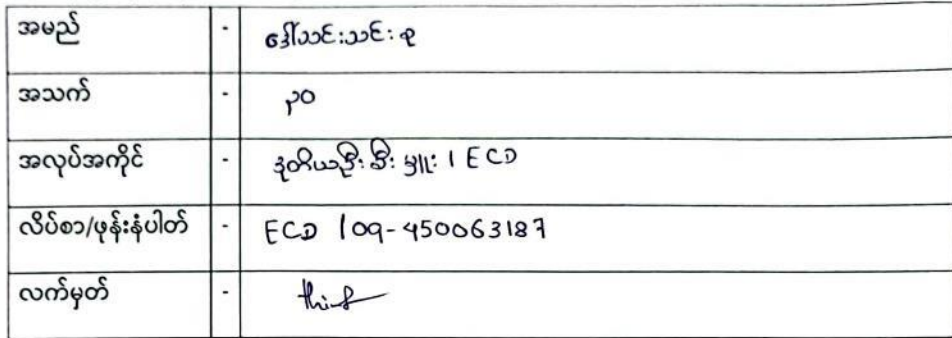 အမည် - ဒေါ်သင်းသင်းစု
အသက် - ၃၀
အလုပ်အကိုင် - ဒုတိယဦးစီးမှူး၊ ECD
လိပ်စာ/ဖုန်းနံပါတ် - ECD / 09-450063187
လက်မှတ် -